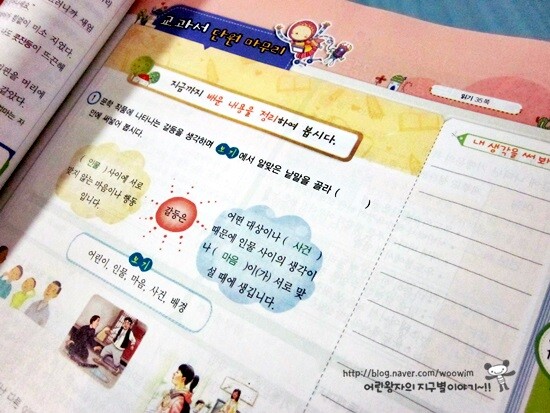 교과서 단원 마무리
읽기 35쪽
지금까지 배운 내용을 정리하여 봅시다.
내 생각을 써 보
1 문학 작품에 나타나는 갈등을 생각하며 보기에서 알맞은 낱말을 골라 (       )
안에 써넣어 봅시다.
( 인물 )사이에 서로
맞지 않는 마음이나 행동
입니다.
갈등은
어떤 대상이나 ( 사건 )
때문에 인물 사이의 생각이
나 ( 마음 )이(가) 서로 맞
설 때에 생깁니다.
보기
어린이, 인물, 마음, 사건, 배경
http://blog.naver.com/woowim
어린왕자의 지구별이야기~!!